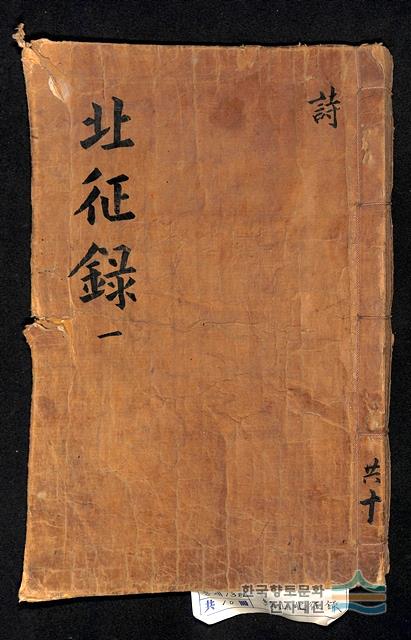 詩
北征録
一
共十
共 10 冊
한국향토문화
전자대전